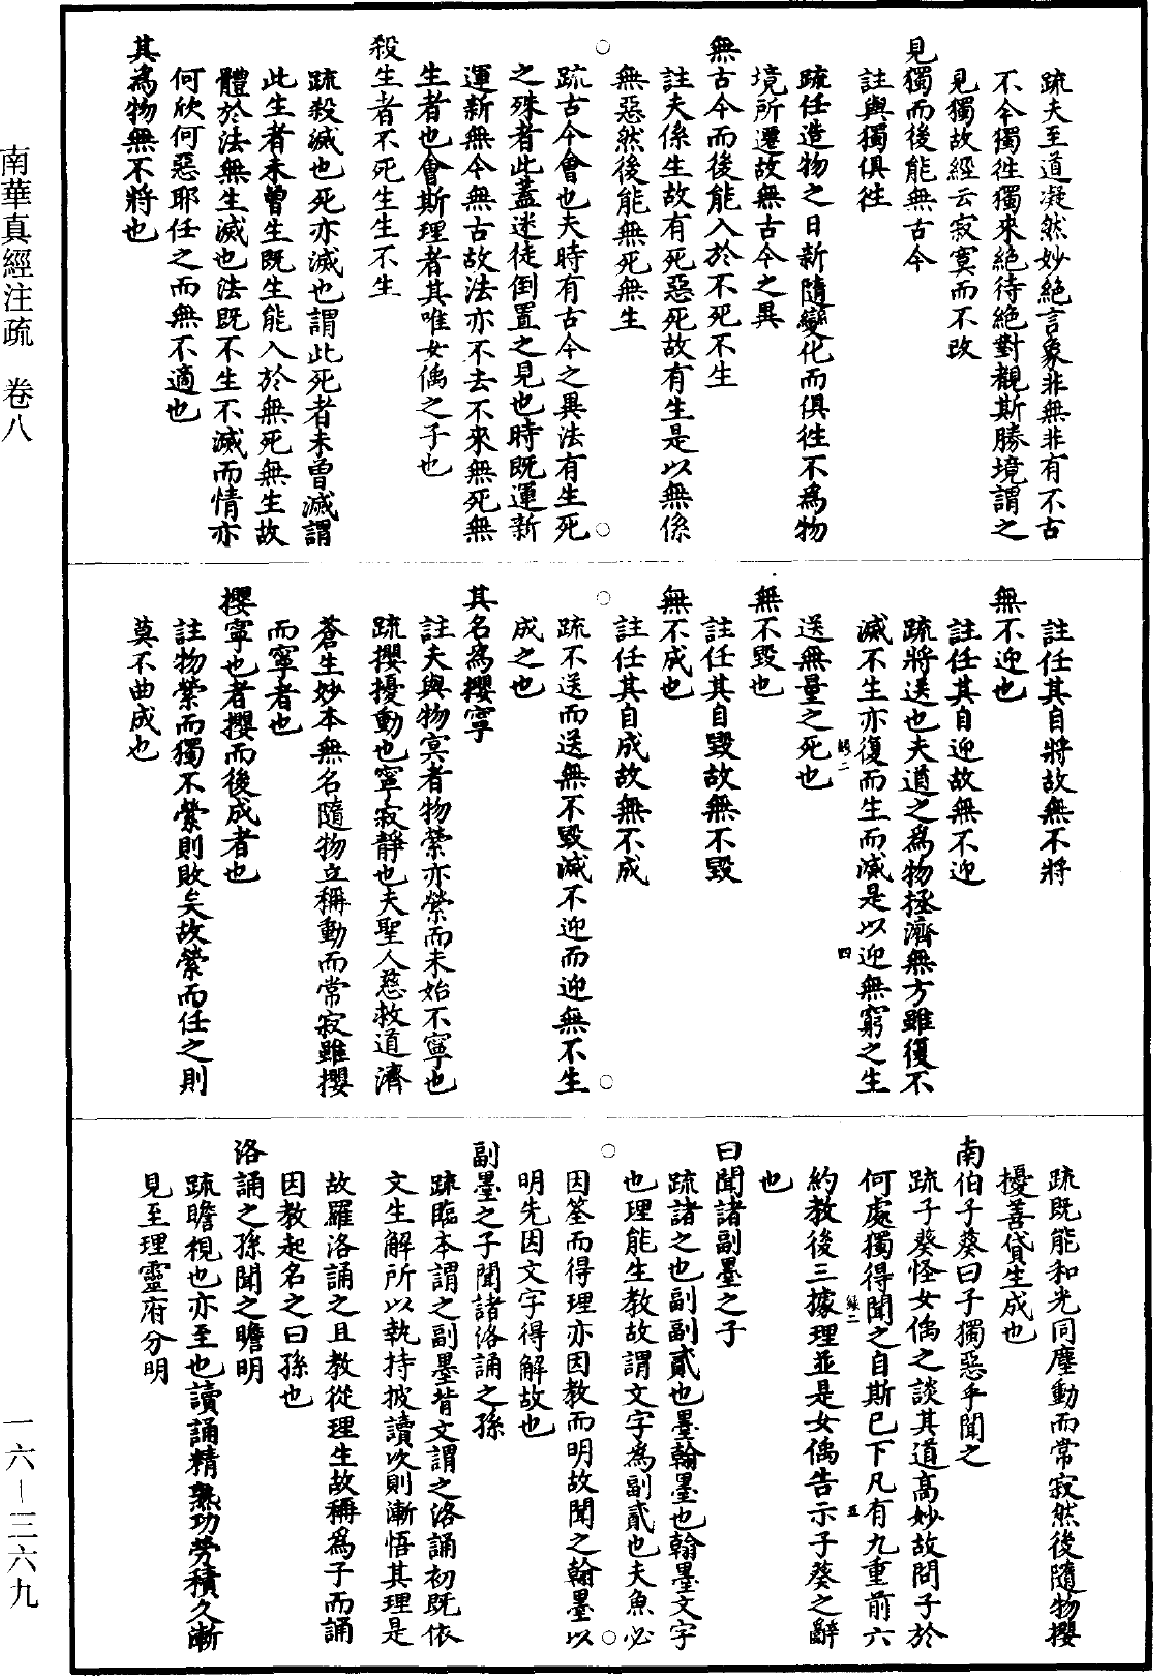 南華真經注疏　卷八
疏夫至道凝然妙絕言象非無非有不古
不今獨往獨來絕待絕對覩斯勝境謂之
見獨故經云寂寞而不改
見獨而後能無古今
註與獨俱往
疏任造物之日新隨變化而俱往不為物
境所遷故無古今之異
無古今而後能入於不死不生
註夫係生故有死惡死故有生是以無係
無惡然後能無死無生
疏古今會也夫時有古今之異法有生死
之殊者此蓋迷徒倒置之見也時既運新
運新無今無古故法亦不去不來無死無
生者也會斯理者其唯女偊之子也
殺生者不死生生不生
疏殺滅也死亦滅也謂此死者未曾滅謂
此生者未曾生既生能入於無死無生故
體於法無生滅也法既不生不滅而情亦
何欣何惡耶任之而無不適也
其為物無不將也
註任其自將故無不將
無不迎也
註任其自迎故無不迎
疏將送也夫道之為物拯濟無方雖復不
滅不生亦復而生而滅是以迎無窮之生
送無量之死也
無不毀也
註任其自毀故無不毀
無不成也
註任其自成故無不成
疏不送而送無不毀滅不迎而迎無不生
成之也
其名為攖寧
註夫與物冥者物縈亦縈而未始不寧也
疏攖擾動也寧寂靜也夫聖人慈救道濟
蒼生妙本無名隨物立稱動而常寂雖攖
而寧者也
攖寧也者攖而後成者也
註物縈而獨不縈則敗矣故縈而任之則
莫不曲成也
疏既能和光同塵動而常寂然後隨物攖
擾善貸生成也
南伯子葵曰子獨惡乎聞之
疏子葵怪女偊之談其道高妙故問子於
何處獨得聞之自斯已下凡有九重前六
約教後三據理並是女偊告示子葵之辭
也
曰聞諸副墨之子
疏諸之也副副貳也墨翰墨也翰墨文字
也理能生教故謂文字為副貳也夫魚必
因筌而得理亦因教而明故聞之翰墨以
明先因文字得解故也
副墨之子聞諸洛誦之孫
疏臨本謂之副墨背文謂之洛誦初既依
文生解所以執持披讀次則漸悟其理是
故羅洛誦之且教從理生故稱為子而誦
因教起名之曰孫也
洛誦之孫聞之瞻明
疏瞻視也亦至也讀誦精熟功勞積久漸
見至理靈府分明
一六—三六九